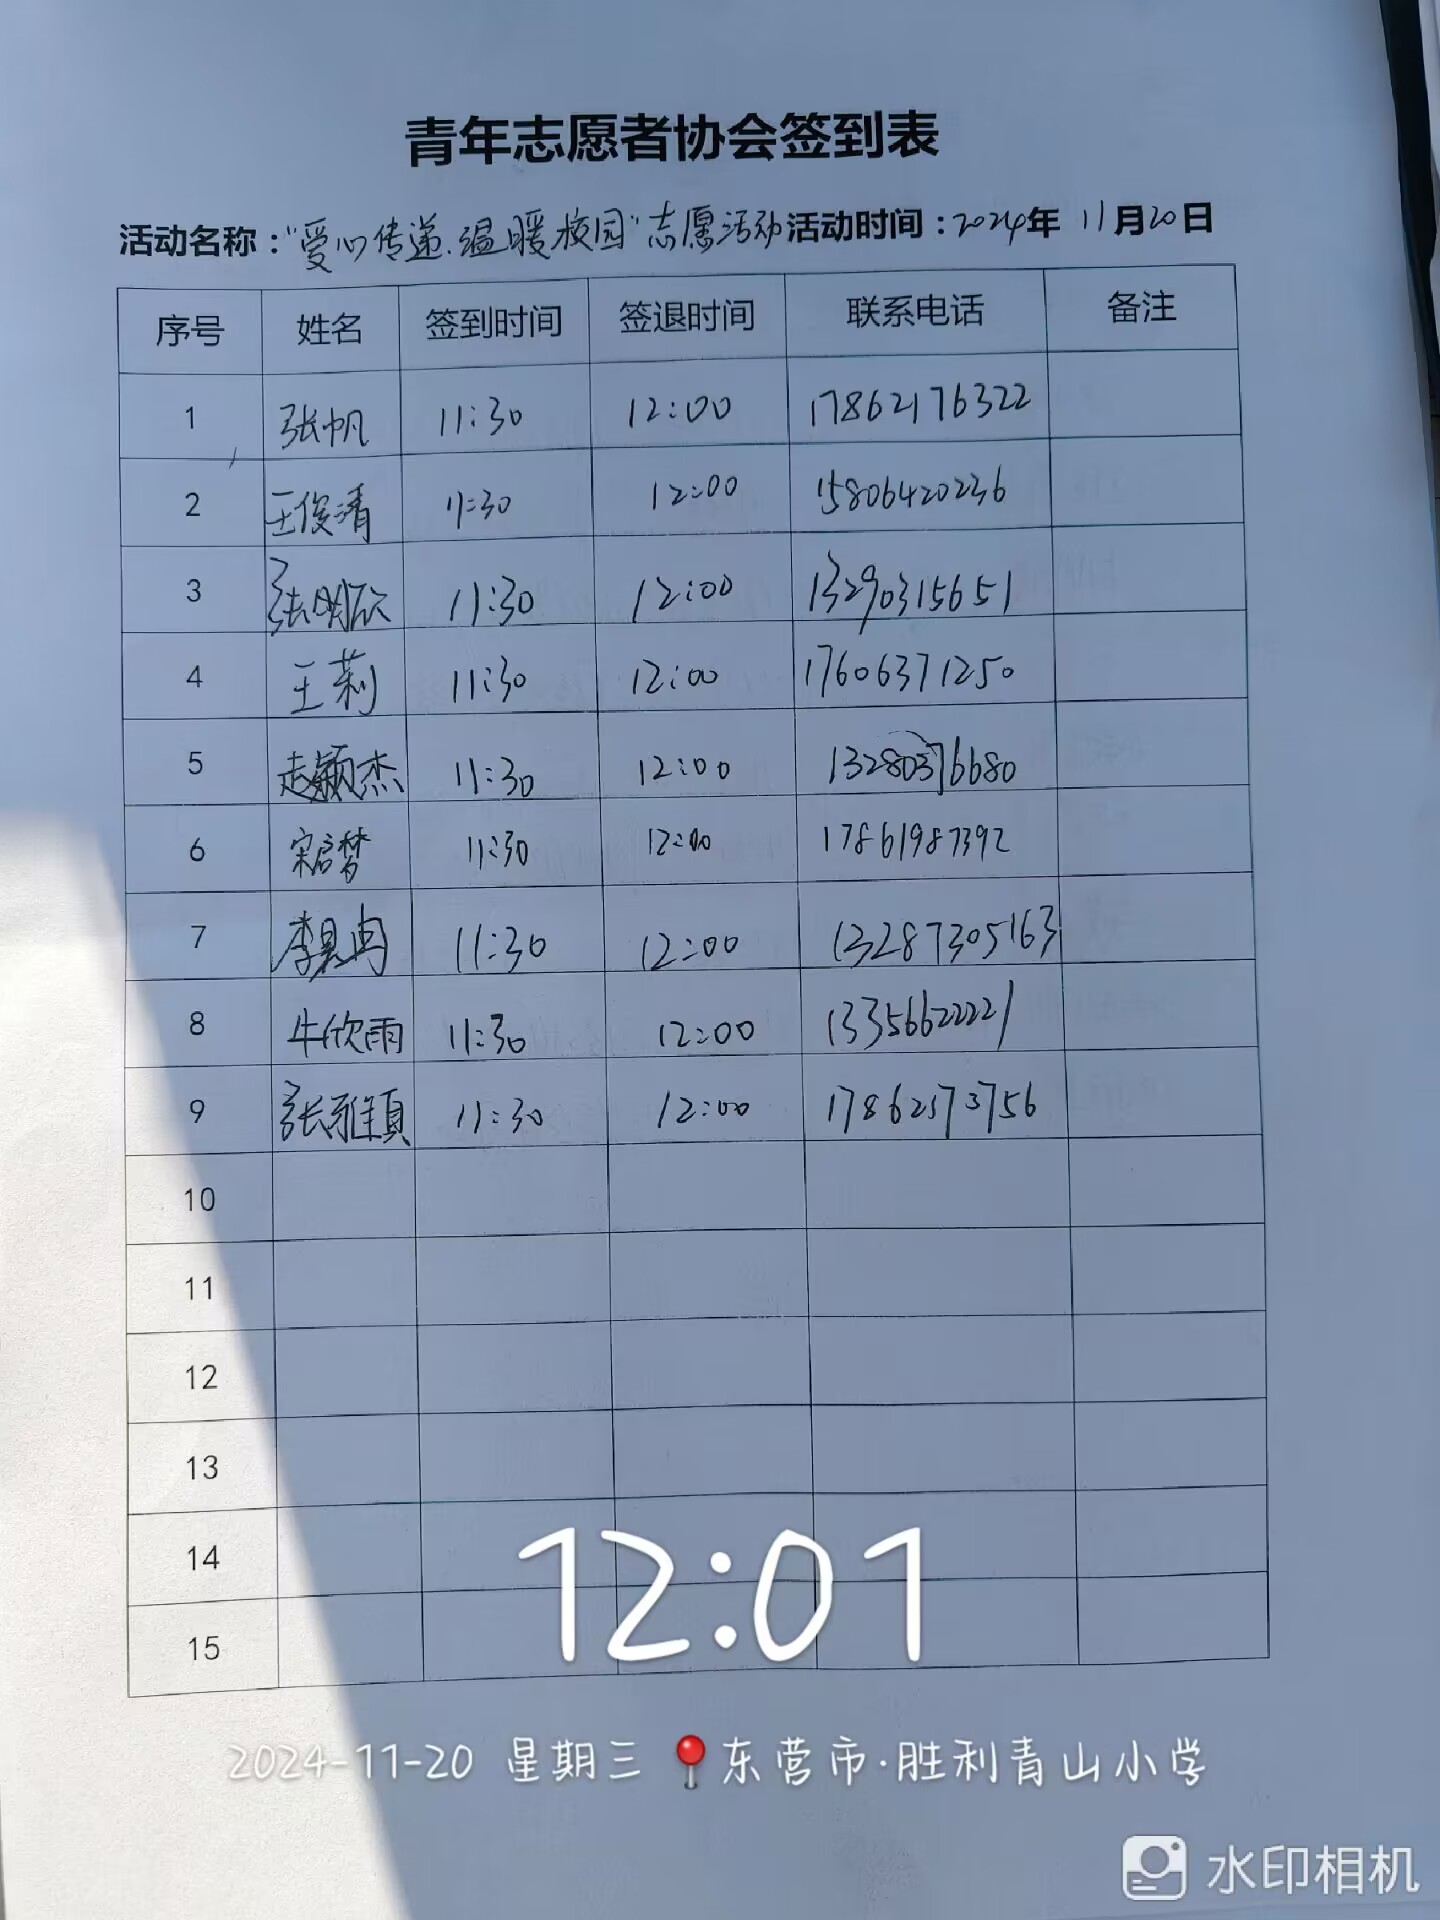 青年志愿者协会签到表
活动名称："爱心传递.温暖校园"志愿活动 活动时间：2024年 11月20日
序号 姓名 签到时间 签退时间 联系电话 备注
1 张帆 11:30 12:00 17862176322
2 王俊清 11:30 12:00 15806420236
3 张明欣 11:30 12:00 13290315651
4 王莉 11:30 12:00 17606371250
5 赵颖杰 11:30 12:00
6 宋启梦 11:30 12:00 17861987392
7 11:30 12:00 13287305163
8 牛欣雨 11:30 12:00 13356622221
9 张雅真 11:30 12:00 17862173756
10
11
12
13
14
15
12:01
2024-11-20 星期三 东营市·胜利青山小学
水印相机